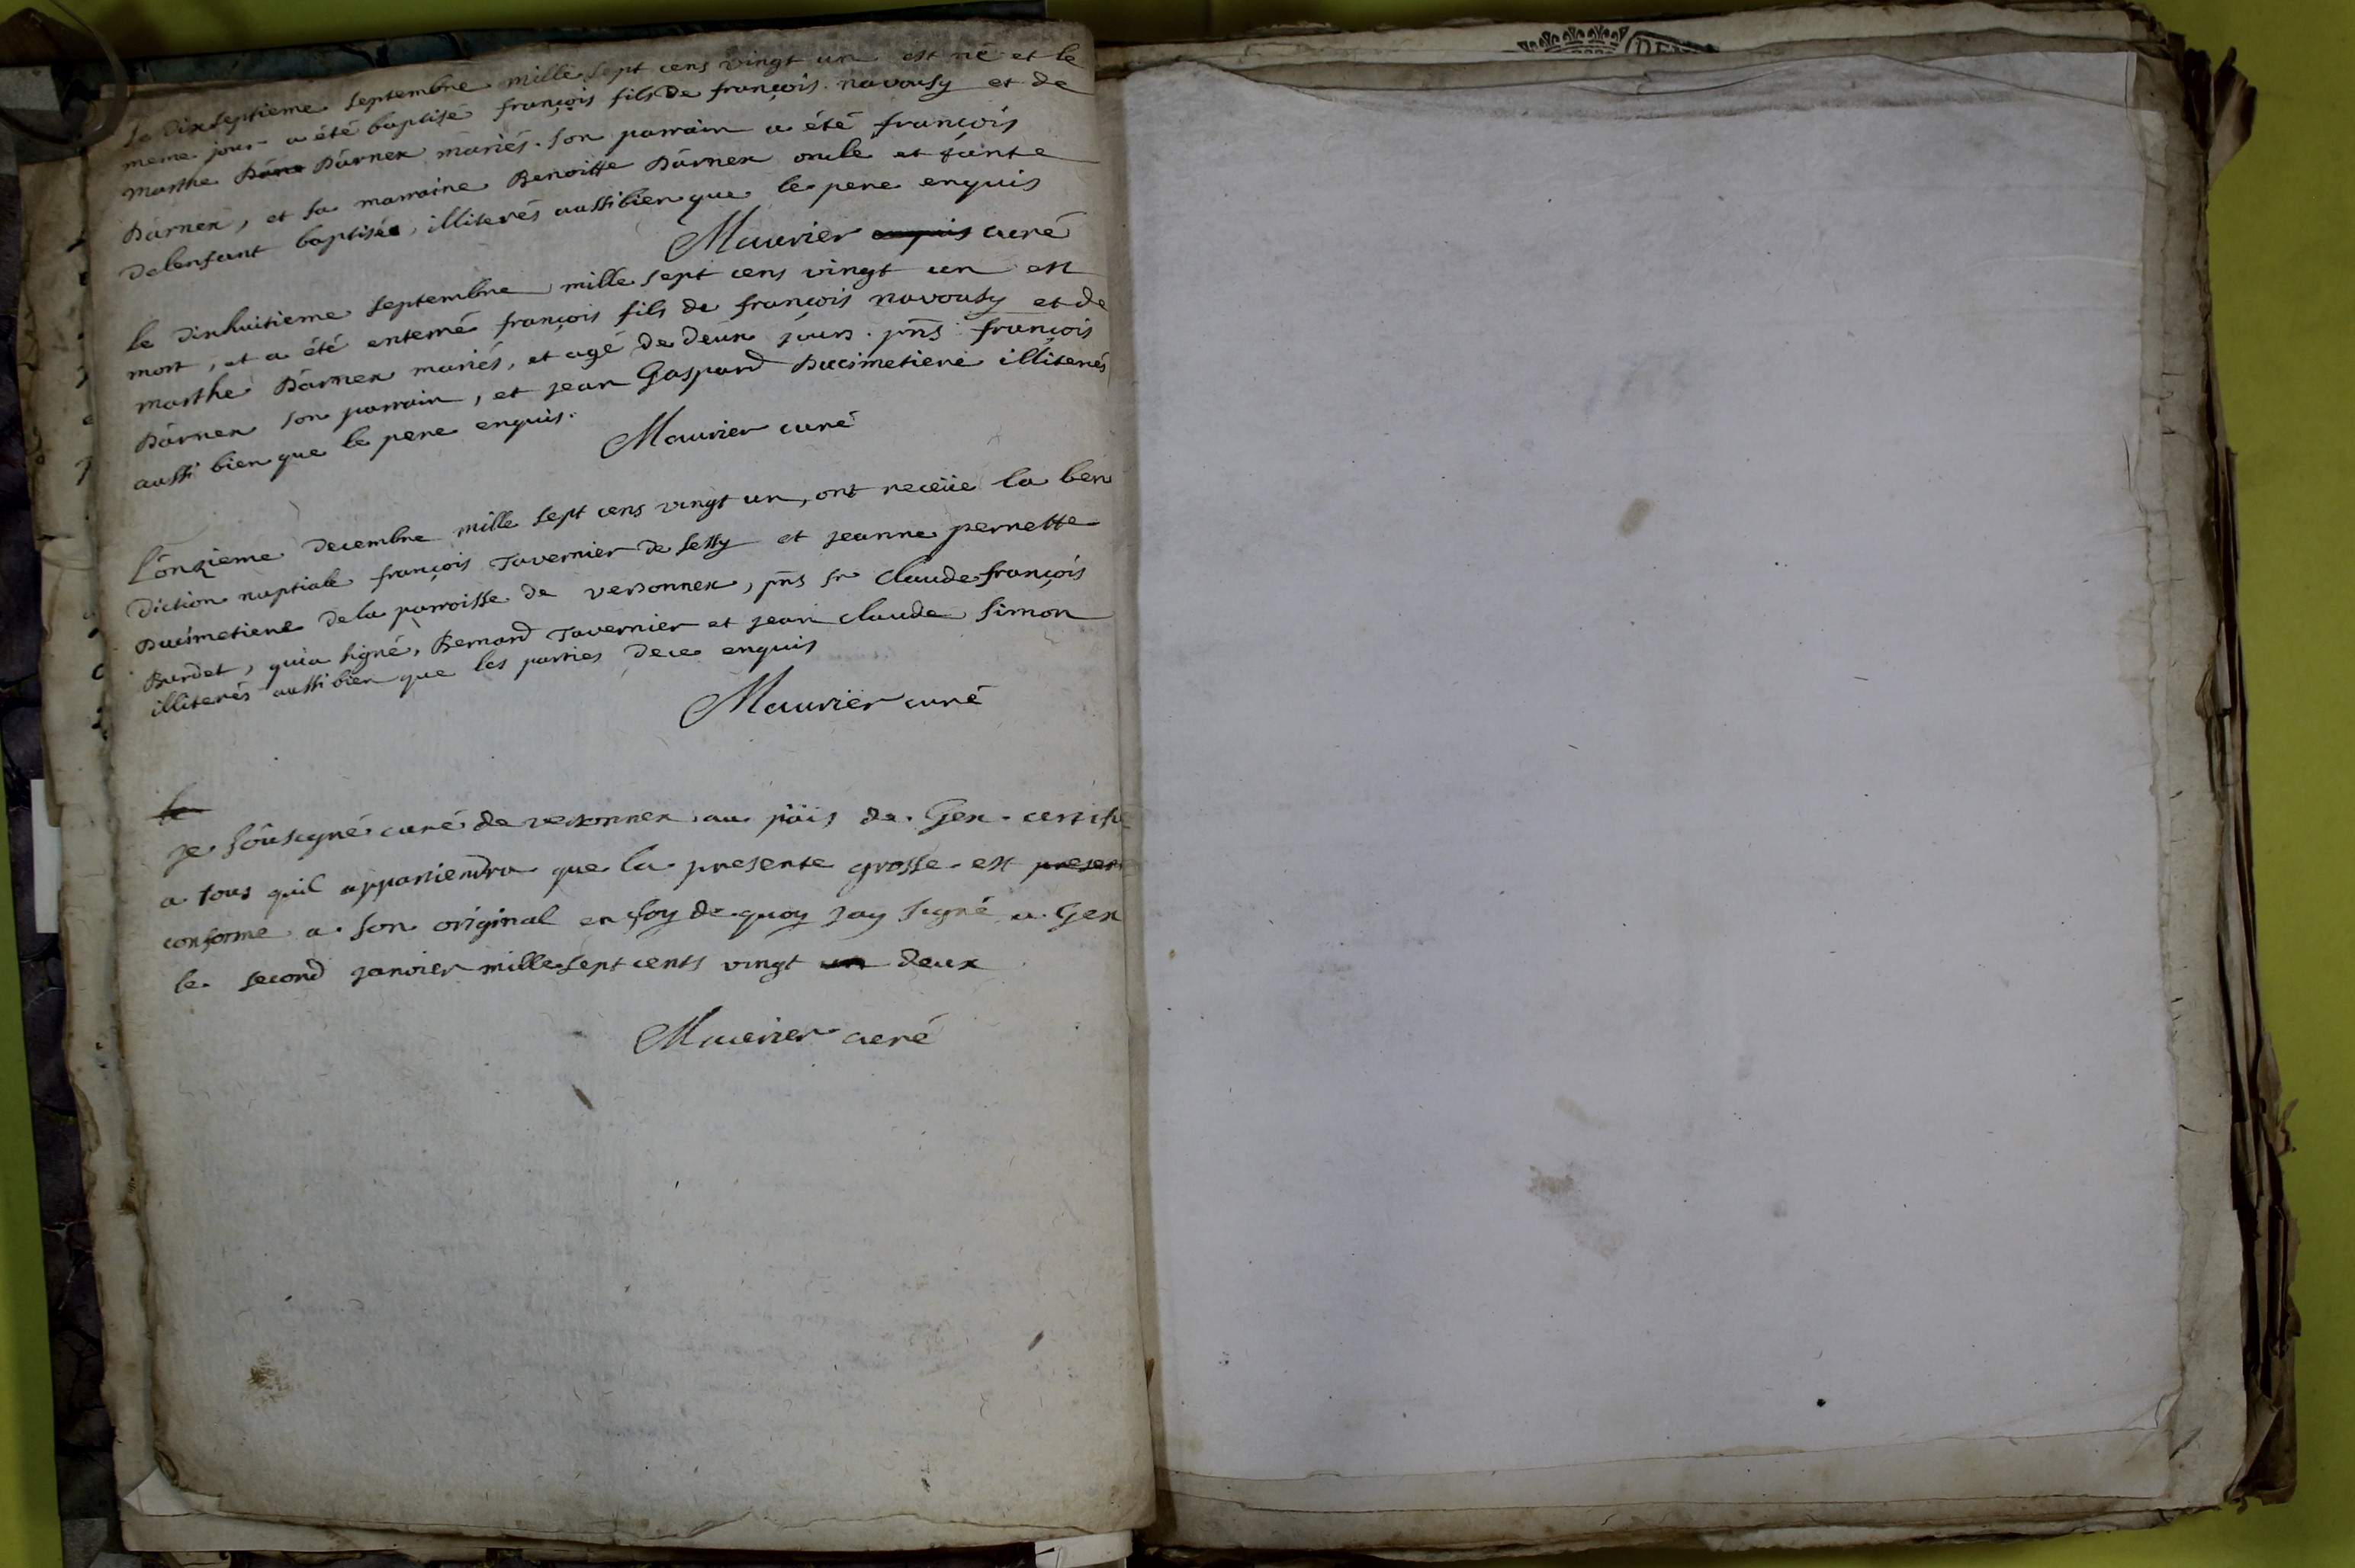 le dixseptieme septembre mille sept cens vingt un est né et le
meme jour a été baptisé françois fils de françois navousy et de
marthe Dârnex mariés. son parrain a été françois
Dârnex, et sa marraine Benoitte Dârnex oncle et tante
delenfant baptisée, illiterés aussi bien que le pere enquis
Mauvier enquis curé
le dixhuitieme septembre mille sept cens vingt un est
mort, et a été enterré françois fils de françois navousy et de
marthe Dârnex mariés, et agé de deux jours. pns françois
Dârnex son parrain, et jean Gaspard Ducimetiere illiterés
aussi bien que le pere enquis.
Mauvier curé
L'ônzieme decembre mille sept cens vingt un, ont receüe la ben
diction nuptiale françois Tavernier de sessy et jeanne pernette
Ducimetiere dela parroisse de versonnex, pns sr claude françois
Burdet, qui a signé, Bernard Tavernier et jean claude simon
illiterés aussi bien que les parties de ce enquis
Mauvier curé
le
je sôusigné curé de versonnex au päis de Gex certifie
a tous quil appartiendra que la presente grosse est presen
conforme a son original en foy de quoy jay signé a Gex
le second janvier mille sept cents vingt un deux
Mauvier curé